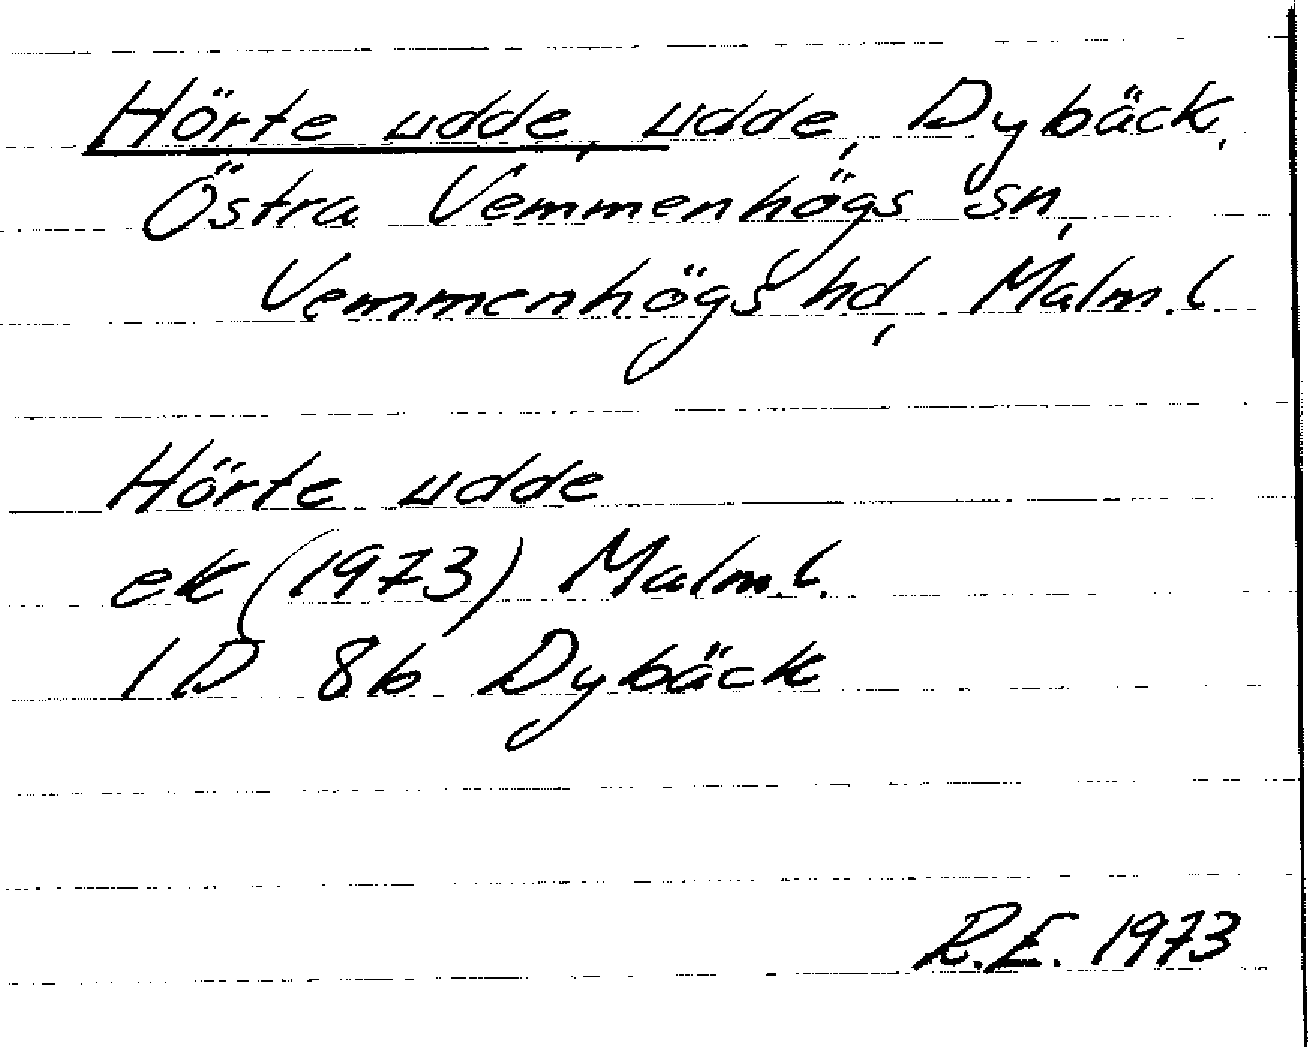 Hörte udde, udde, Dybäck,
Östra Vemmenhögs sn,
Vemmenhögs hd, Malm.l
Hörte udde
ek (1973) Malm.l.
1D 8b Dybäck
R.E. 1973